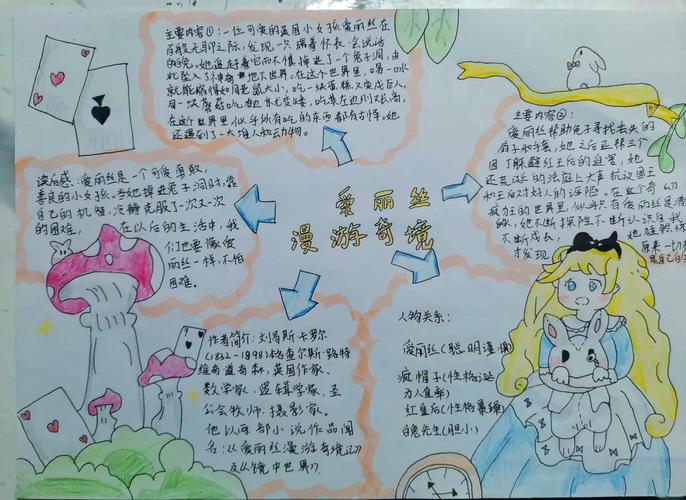 主要内容①:一位可爱的英国小女孩爱丽丝在
百般无聊之际,发现一只揣着怀表、会说话
的白兔。她追赶着它而不慎掉进了一个兔子洞,由
此坠入了神奇的地下世界。在这个世界里,喝一口水
就能缩得如同老鼠大小,吃一块蛋糕又变成巨人,
同一块蘑菇吃右边就变矮,吃其左边则又长高,
在这个世界里似乎所有吃的东西都有古怪。她
还遇到了一大堆人和动物。
主要内容②:
爱丽丝帮助兔子寻找丢失的
扇子和手套,她之后还帮三个
园丁躲避红王后的迫害,她
还在荒诞的法庭上大声抗议国王
和王后对好人的诬陷。在这个奇幻
疯狂的世界里,似乎只有爱丽丝是清
的,她不断探险不断认识自我
不断成长,
才发现
原来一切
读后感:爱丽丝是一个可爱勇敢,
善良的小女孩。当她掉进兔子洞时,靠
自己的机智,冷静克服了一次又一次
的困难。在以后的生活中,我
们也要像爱
丽丝一样,不怕
困难。
爱丽丝
漫游奇境
作者简介:刘易斯·卡罗尔
(1832-1898)本名查尔斯·路特
维奇·道奇森,英国作家、
数学家、逻辑学家、圣
公会牧师、摄影家。
他以两部小说作品闻
名:《爱丽丝漫游奇境记》
及《镜中世界》
人物关系:
爱丽丝(聪明谨慎)
疯帽子(性格怪诞
为人直率)
红皇后(性格暴躁)
白兔先生(胆小)